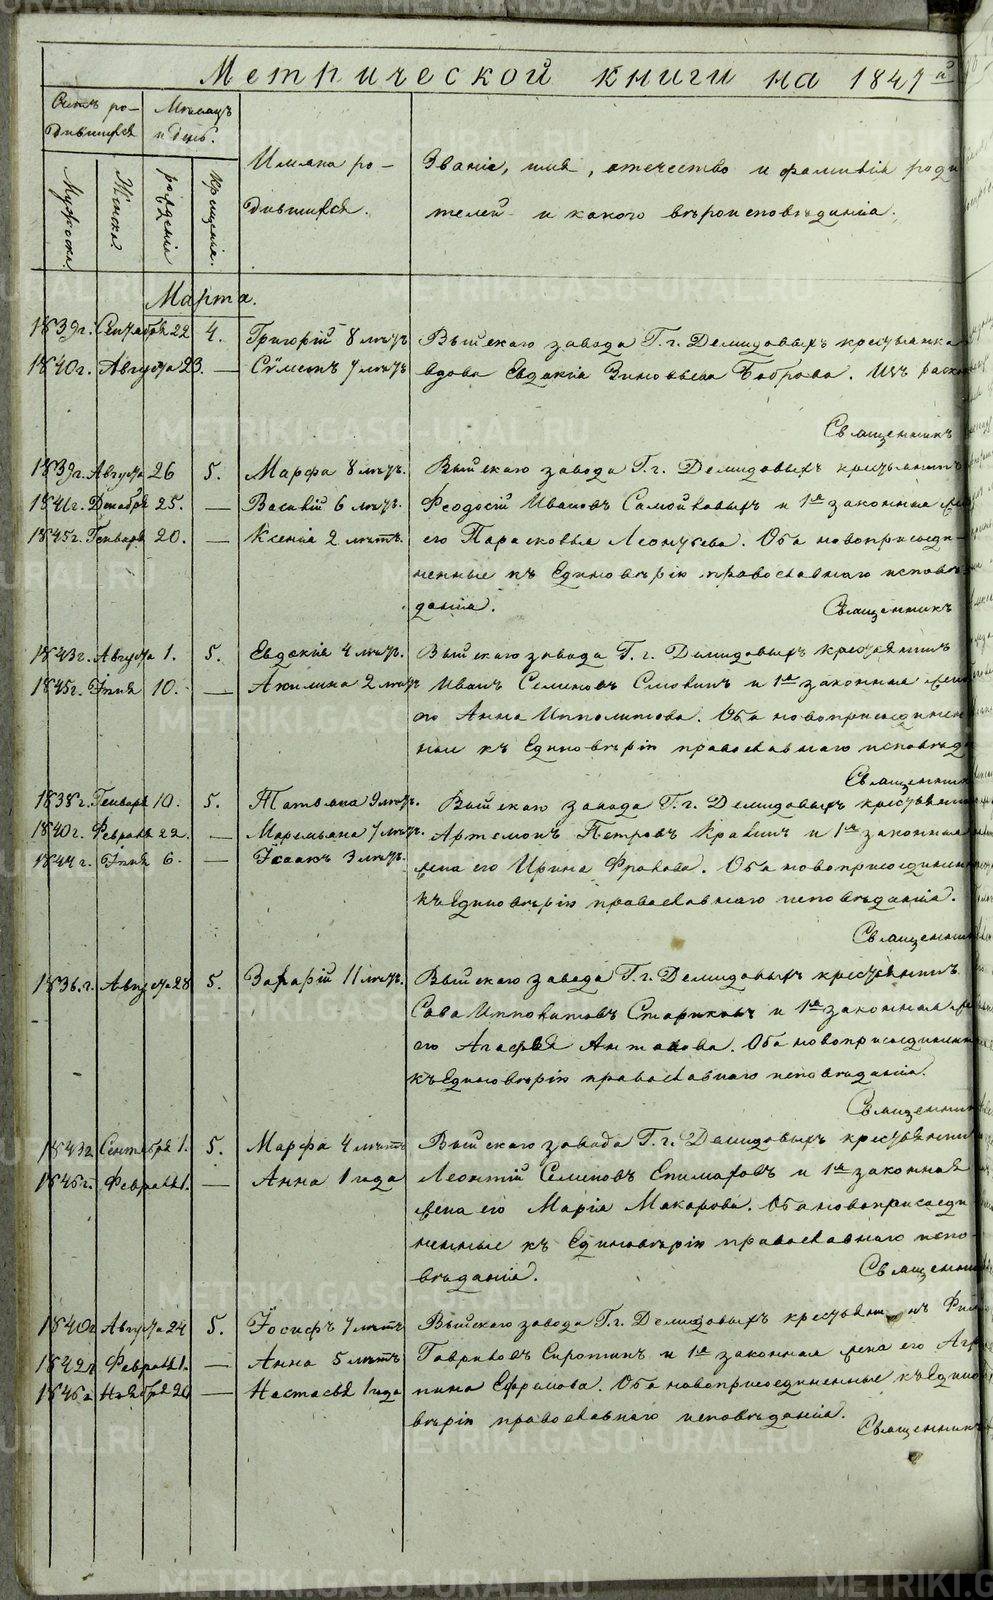 Метрической книги на 1847й
Счетъ ро-
дившихся
Месяцъ
и день.
Мужеска.
Женска.
рожденія
крещенія.
Имяна ро-
дившихся.
Званіе, имя, отечество и фамилія роди
телей и какого вѣроисповѣданія.
Марта.
1839г. Сентября 22 4. Григорій 8 лѣтъ Выйскаго завода Г. г. Демидовыхъ крестьянка
1840г. Августа 23. — Сѵмеонъ 7 лѣтъ вдова Евдокія Зиновьева Боброва. Изъ раско
Священникъ
1839г. Августа 26 5. Марфа 8 лѣтъ. Выйскаго завода Г. г. Демидовыхъ крестьянинъ
1841г. Декабря 25. — Василій 6 лѣтъ. Феодосій Ивановъ Самойловыхъ и 1я законная же
1845г. Генваря 20. — Ксенія 2 лѣтъ. его Парасковья Леонтьева. Оба новоприсоеди-
ненные къ Единовѣрію православнаго исповѣ-
данія. Священникъ
1843г. Августа 1. 5. Евдокія 4 лѣтъ. Выйскаго завода Г. г. Демидовыхъ крестьянинъ
1845г. Іюня 10. — Акилина 2 лѣтъ Иванъ Семеновъ и 1я законная жена
его Анна Ипполитова. Оба новоприсоединен
ные къ Единовѣрію православнаго исповѣда
Священник
1838г. Генваря 10. 5. Татьяна 9 лѣтъ. Выйскаго завода Г. г. Демидовыхъ крестьянин
1840г. Февраля 22. — Маремьяна 7 лѣтъ. Артемонъ Петровъ и 1я законная
1844г. Іюня 6. — Ісаакъ 3 лѣтъ. жена его Ирина Фролова. Оба новоприсоединен
къ Единовѣрію православнаго исповѣданія.
Священник
1836.г. Августа 28 5. 11 лѣтъ. Выйскаго завода Г. г. Демидовыхъ крестьянинъ
Сава Ипполитовъ Стариковъ и 1я законная же
его Агафья Антонова. Оба новоприсоединен
къ Единовѣрію православнаго исповѣданія.
Священник
1843г Сентября 1. 5. Марфа 4 лѣтъ Выйскаго завода Г. г. Демидовыхъ крестьянин
1846г. Февраля 1. — Анна 1 года Леонтій Семеновъ Епимаховъ и 1я законная
жена его Марія Макарова. Оба новоприсоеди
ненные къ Единовѣрію православнаго испо-
вѣданія. Священник
1840г Августа 24 5. Іосифъ 7 лѣтъ Выйскаго завода Г. г. Демидовыхъ крестьянинъ
1842г Февраля 1. — Анна 5 лѣтъ Гавриловъ Сиротинъ и 1я законная жена его Агр
1846г Ноября 20 — Настасья 1 года пина Ефремова. Оба новоприсоединенные къ Едино
вѣрію православнаго исповѣданія.
Священникъ
METRIKI.GASO-URAL.RU